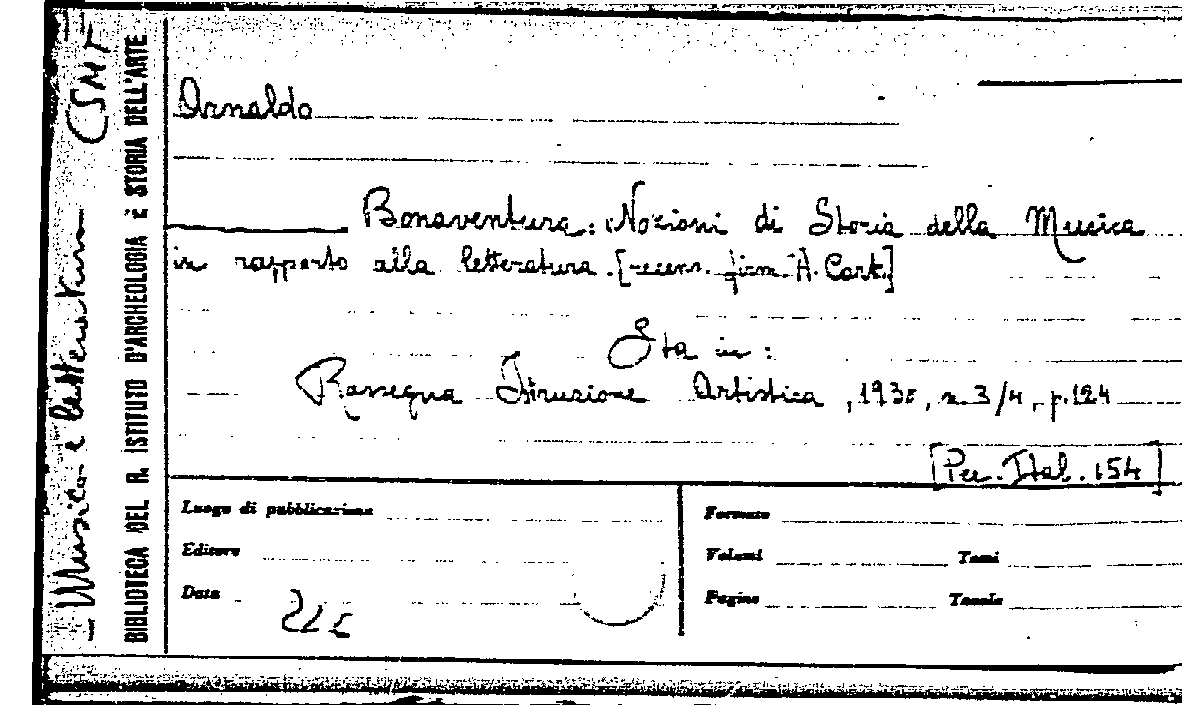 — Musica e letteratura (SMT
BIBLIOTECA DEL R. ISTITUTO D'ARCHEOLOGIA E STORIA DELL'ARTE
Arnaldo
Bonaventura: Nozioni di Storia della Musica
in rapporto alla letteratura. [recens. firm. A. Cort.]
Sta in:
Rassegna Istruzione Artistica, 1935, n. 3/4, p. 124
[Per. Ital. 154]
Luogo di pubblicazione
Editore
Data
Formato
Volumi Tomi
Pagine Tavole